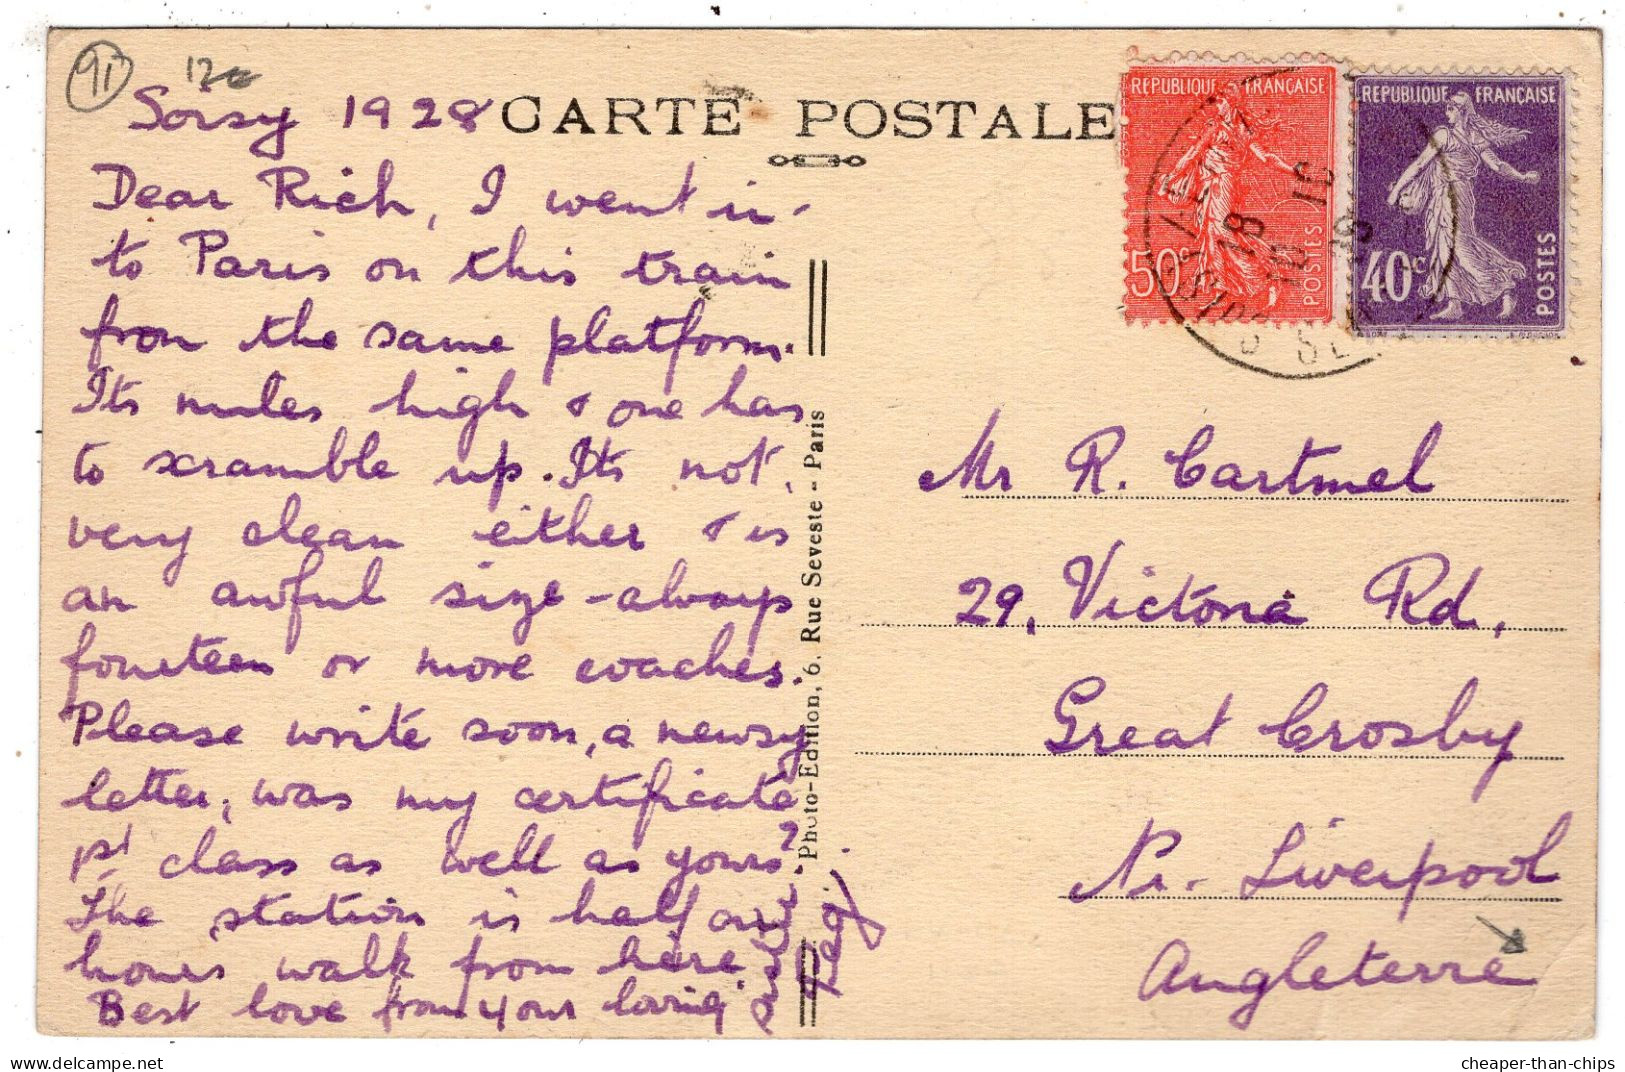 91
12e
Soisy 1928
CARTE POSTALE
Dear Rich, I went in-
to Paris on this train
from the same platform.
Its miles high & one has
to scramble up. Its not
very clean either & is
an awful size - always
fourteen or more coaches.
Please write soon, a newsy
letter, was my certificate
1st class as well as yours?
The station is half an
hours walk from here
Best love from your loving
Peg.
Photo-Edition, 6, Rue Seveste - Paris
RÉPUBLIQUE FRANÇAISE
50c
POSTES
RÉPUBLIQUE FRANÇAISE
40c
POSTES
18
Mr R. Cartmel
29, Victoria Rd,
Great Crosby
Nr. Liverpool
Angleterre
cheaper-than-chips